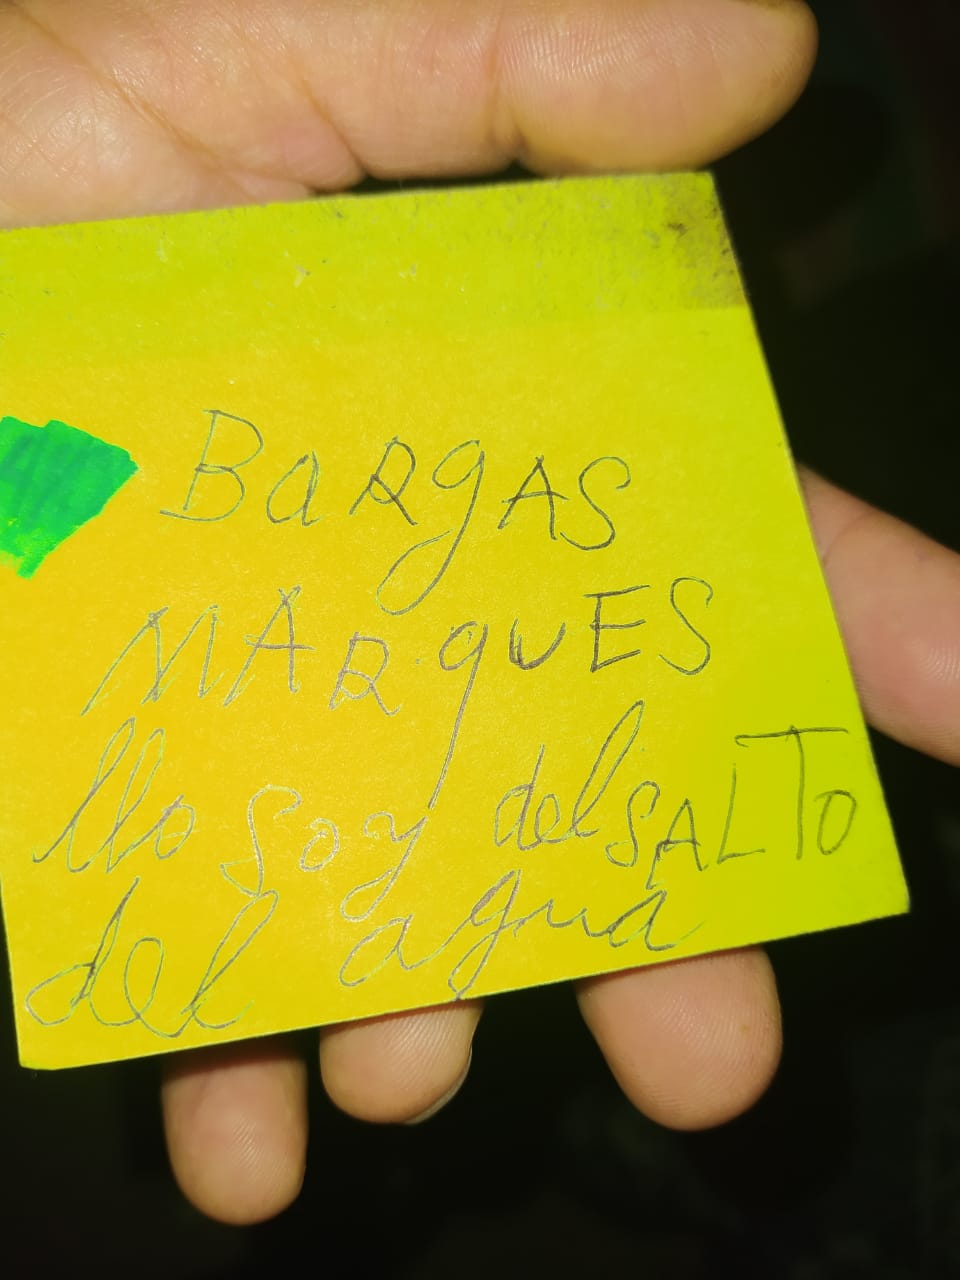 BaRgAS
MARqUES
llo soy del SALTO
del agua